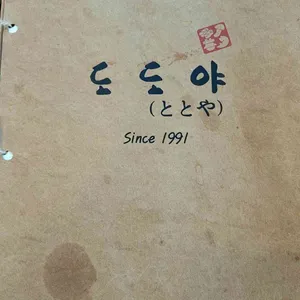 도도야
(ととや)
Since 1991